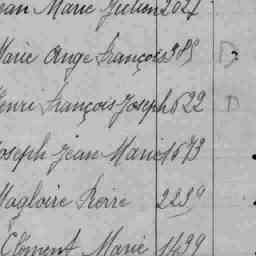 ean Marie Julien 2024
Marie Ange François 985 D
Henri François Joseph 622 D
Joseph Jean Marie 1673
Magloire Pierre 2239
Clément Marie 1499